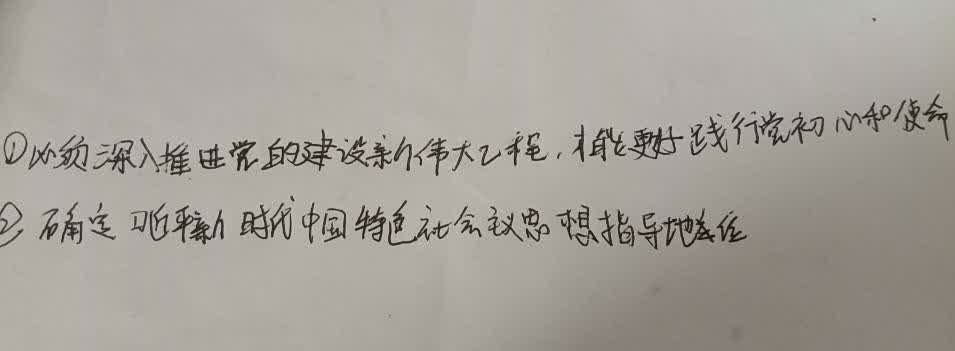 ①必须深入推进党的建设新伟大工程,才能更好践行党初心和使命
② 确定习近平新时代中国特色社会议思想指导地位